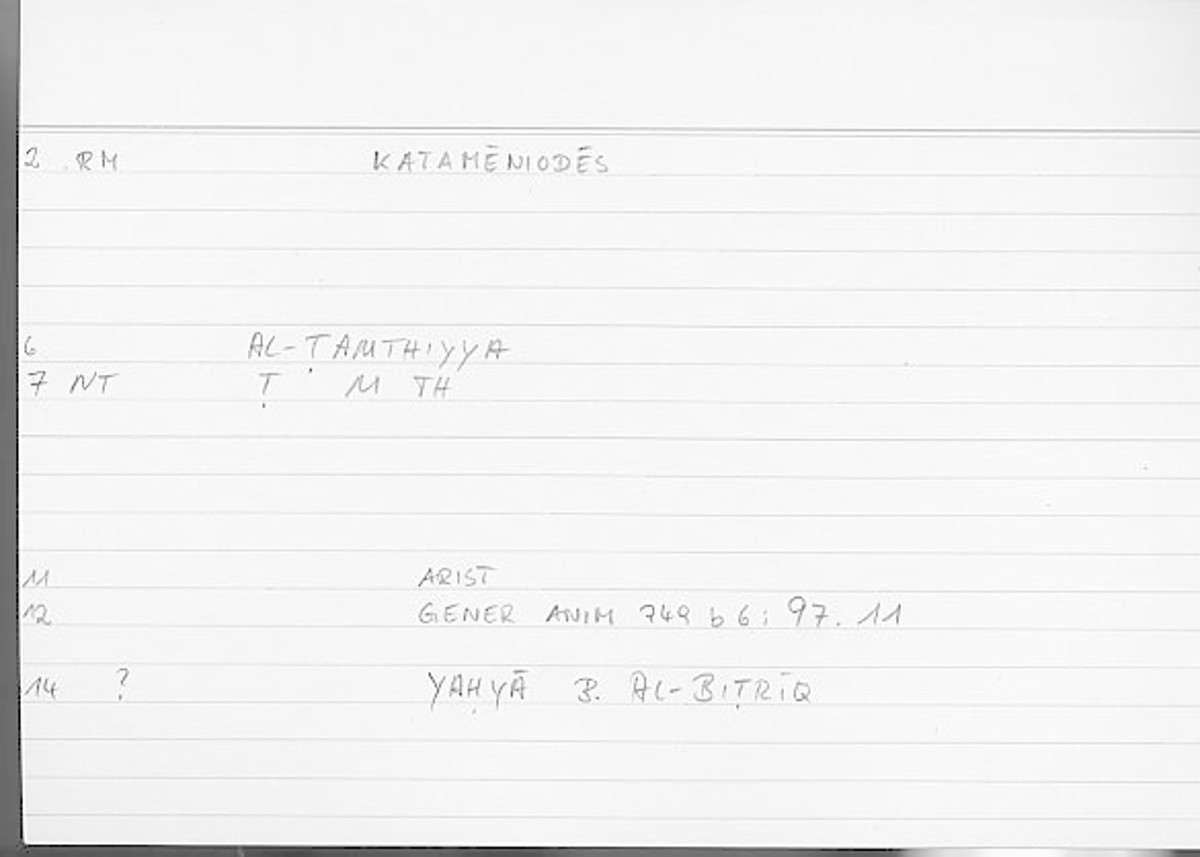 2 RM KATAMĒNIODĒS
6 AL-ṬAMTHIYYA
7 NT Ṭ M TH
11 ARIST
12 GENER ANIM 749 b 6; 97. 11
14 ? YAḤYĀ B. AL-BIṬRĪQ